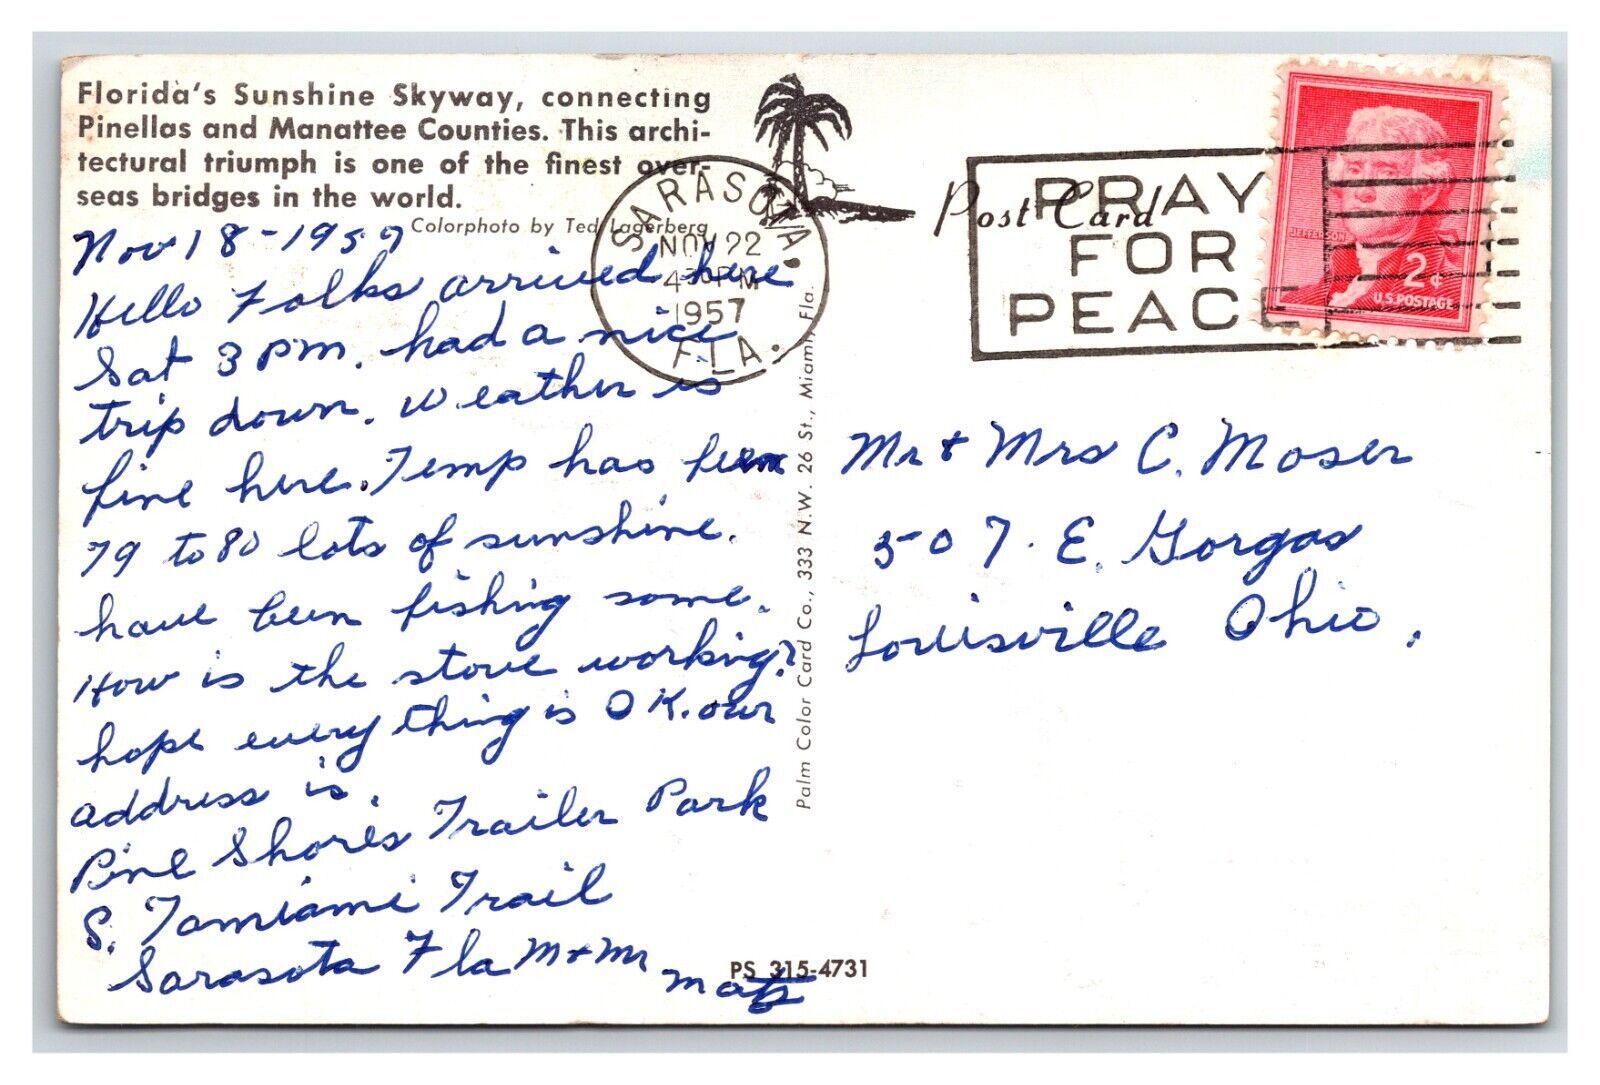 Florida's Sunshine Skyway, connecting
Pinellas and Manattee Counties. This archi-
tectural triumph is one of the finest over-
seas bridges in the world.
Colorphoto by Ted Lagerberg
Nov 18-1957
Hello Folks arrived here
Sat 3 PM. had a nice
trip down. Weather is
fine here. Temp has been
79 to 80 lots of sunshine.
have been fishing some.
How is the stove working?
hope every thing is OK. our
address is.
Pine Shores Trailer Park
S. Tamiami Trail
Sarasota Fla M + Mr
PS 315-4731
SARASOTA
NOV 22
4 PM
1957
FLA.
Palm Color Card Co., 333 N.W. 26 St., Miami, Fla.
Post Card
PRAY
FOR
PEACE
JEFFERSON
2¢
U.S. POSTAGE
Mr + Mrs C. Moser
507. E. Gorgas
Louisville Ohio.